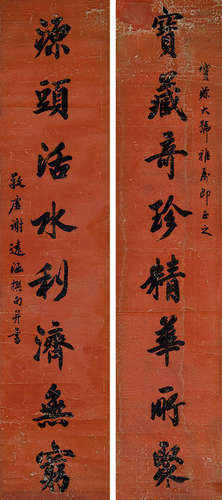 寶源大號雅屬即正之
寶藏奇珍精華所聚
源頭活水利濟無窮
敬虛謝遠涵撰句并書